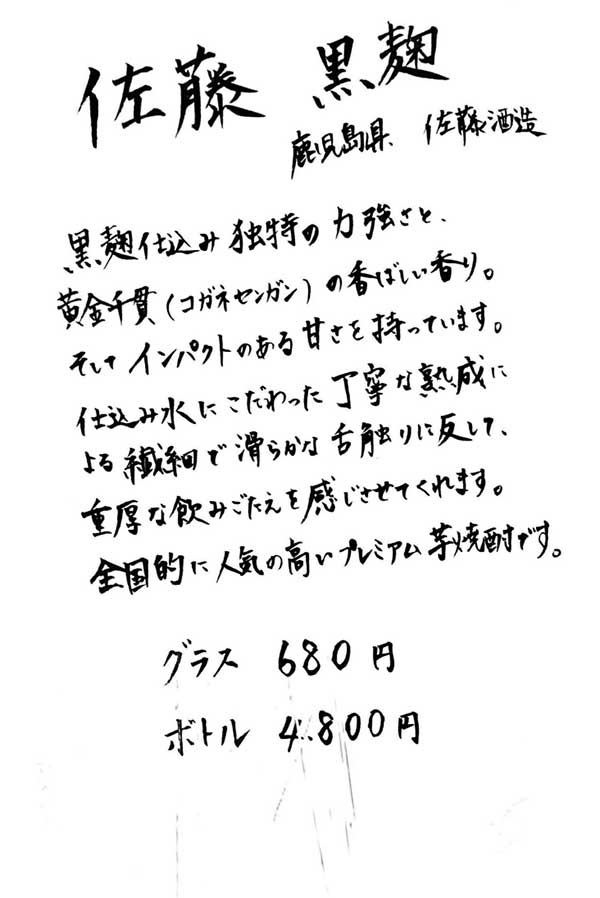 佐藤 黒麹
鹿児島県 佐藤酒造
黒麹仕込み独特の力強さと、
黄金千貫(コガネセンガン)の香ばしい香り。
そしてインパクトのある甘さを持っています。
仕込み水にこだわった丁寧な熟成に
よる繊細で滑らかな舌触りに反して、
重厚な飲みごたえを感じさせてくれます。
全国的に人気の高いプレミアム芋焼酎です。
グラス 680円
ボトル 4.800円